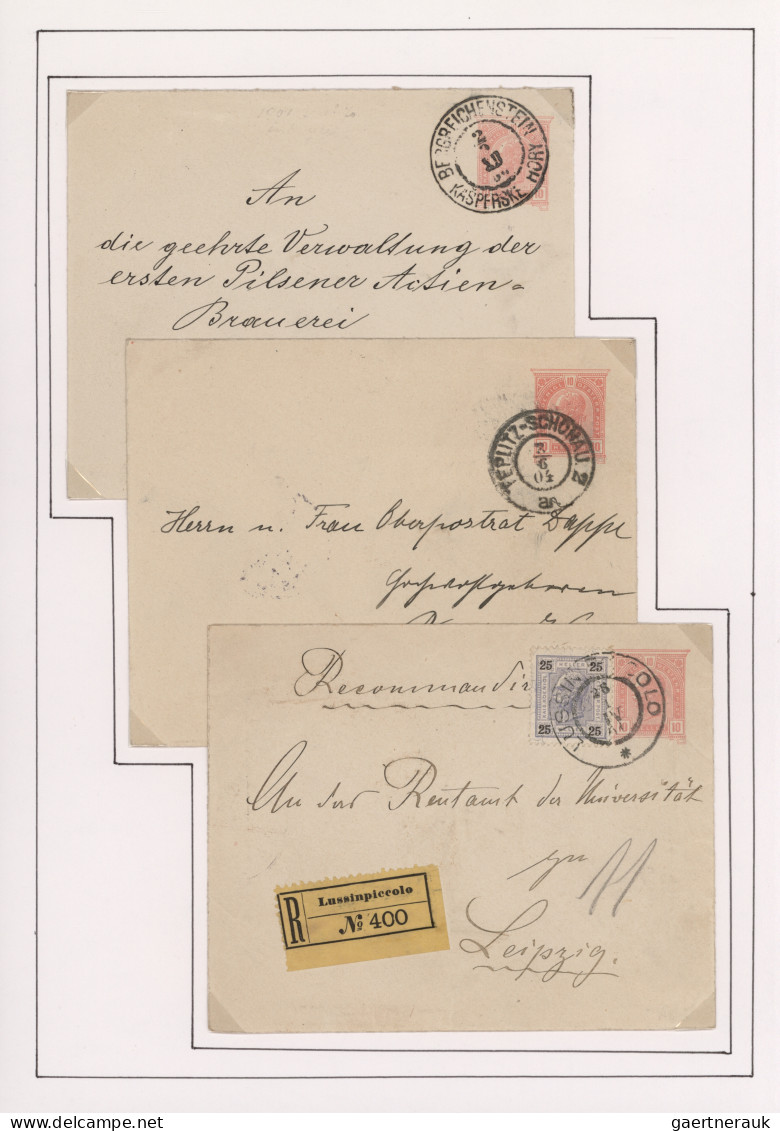 BERGREICHENSTEIN
KASPERSKÉ
10
An
die geehrte Verwaltung der
ersten Pilsener Actien=
Brauerei
10
TEPLITZ-SCHÖNAU 2
2
6
04
Herrn u. Frau Oberpostrat Dappe
Hochwohlgeboren
Recommandir
25 25
25 25
10
10 10
LUSSINPICCOLO
An das Rentamt der Universität
zu
Leipzig.
R
Lussinpiccolo
№ 400
delcampe.net
gaertnerauk